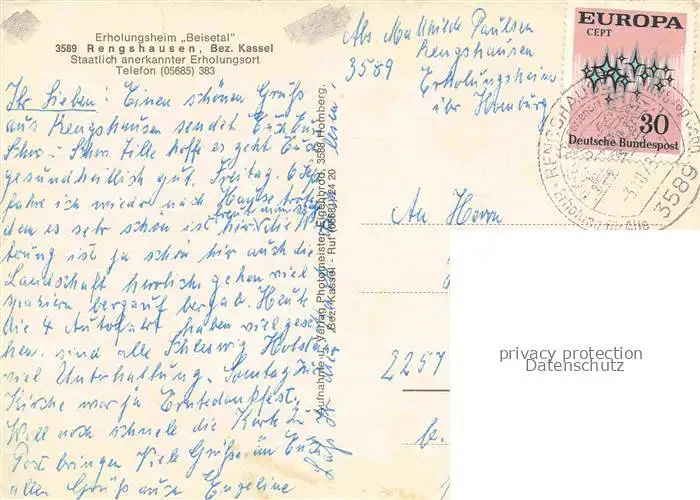 Erholungsheim „Beisetal"
3589 Rengshausen, Bez. Kassel
Staatlich anerkannter Erholungsort
Telefon (05685) 383
Ihr Lieben! Einen schönen Gruß
aus Rengshausen sendet Euch
hoffe es geht Euch
gesundheitlich gut. Freitag
fahre ich wieder nach Hause trotz
dem es sehr schön ist hier die
ist ja schön hier auch die
Landschaft herrlich gehen viel
spazieren bergauf bergab. Heute
die 4 Autofahrt haben viel gese
hen. sind alle Schleswig Holstein
viel Unterhaltung. Sonntag zur
Kirche war ja Erntedankfest.
Will noch schnelle die Karte zu
Post bringen Viele Grüße an Euch
allen Gruß auch Engeline
Aufnahme u. Verlag Photomeister Eigenbrod, 3588 Homberg,
Bez. Kassel - Ruf (05681) 24 20
Abs. Mathilde Paulsen
Rengshausen
3589 Erholungsheim
über Homburg
EUROPA
CEPT
30
Deutsche Bundespost
RENGSHAUSEN
Erholung für Alle
3589
An Herrn
2257
privacy protection
Datenschutz